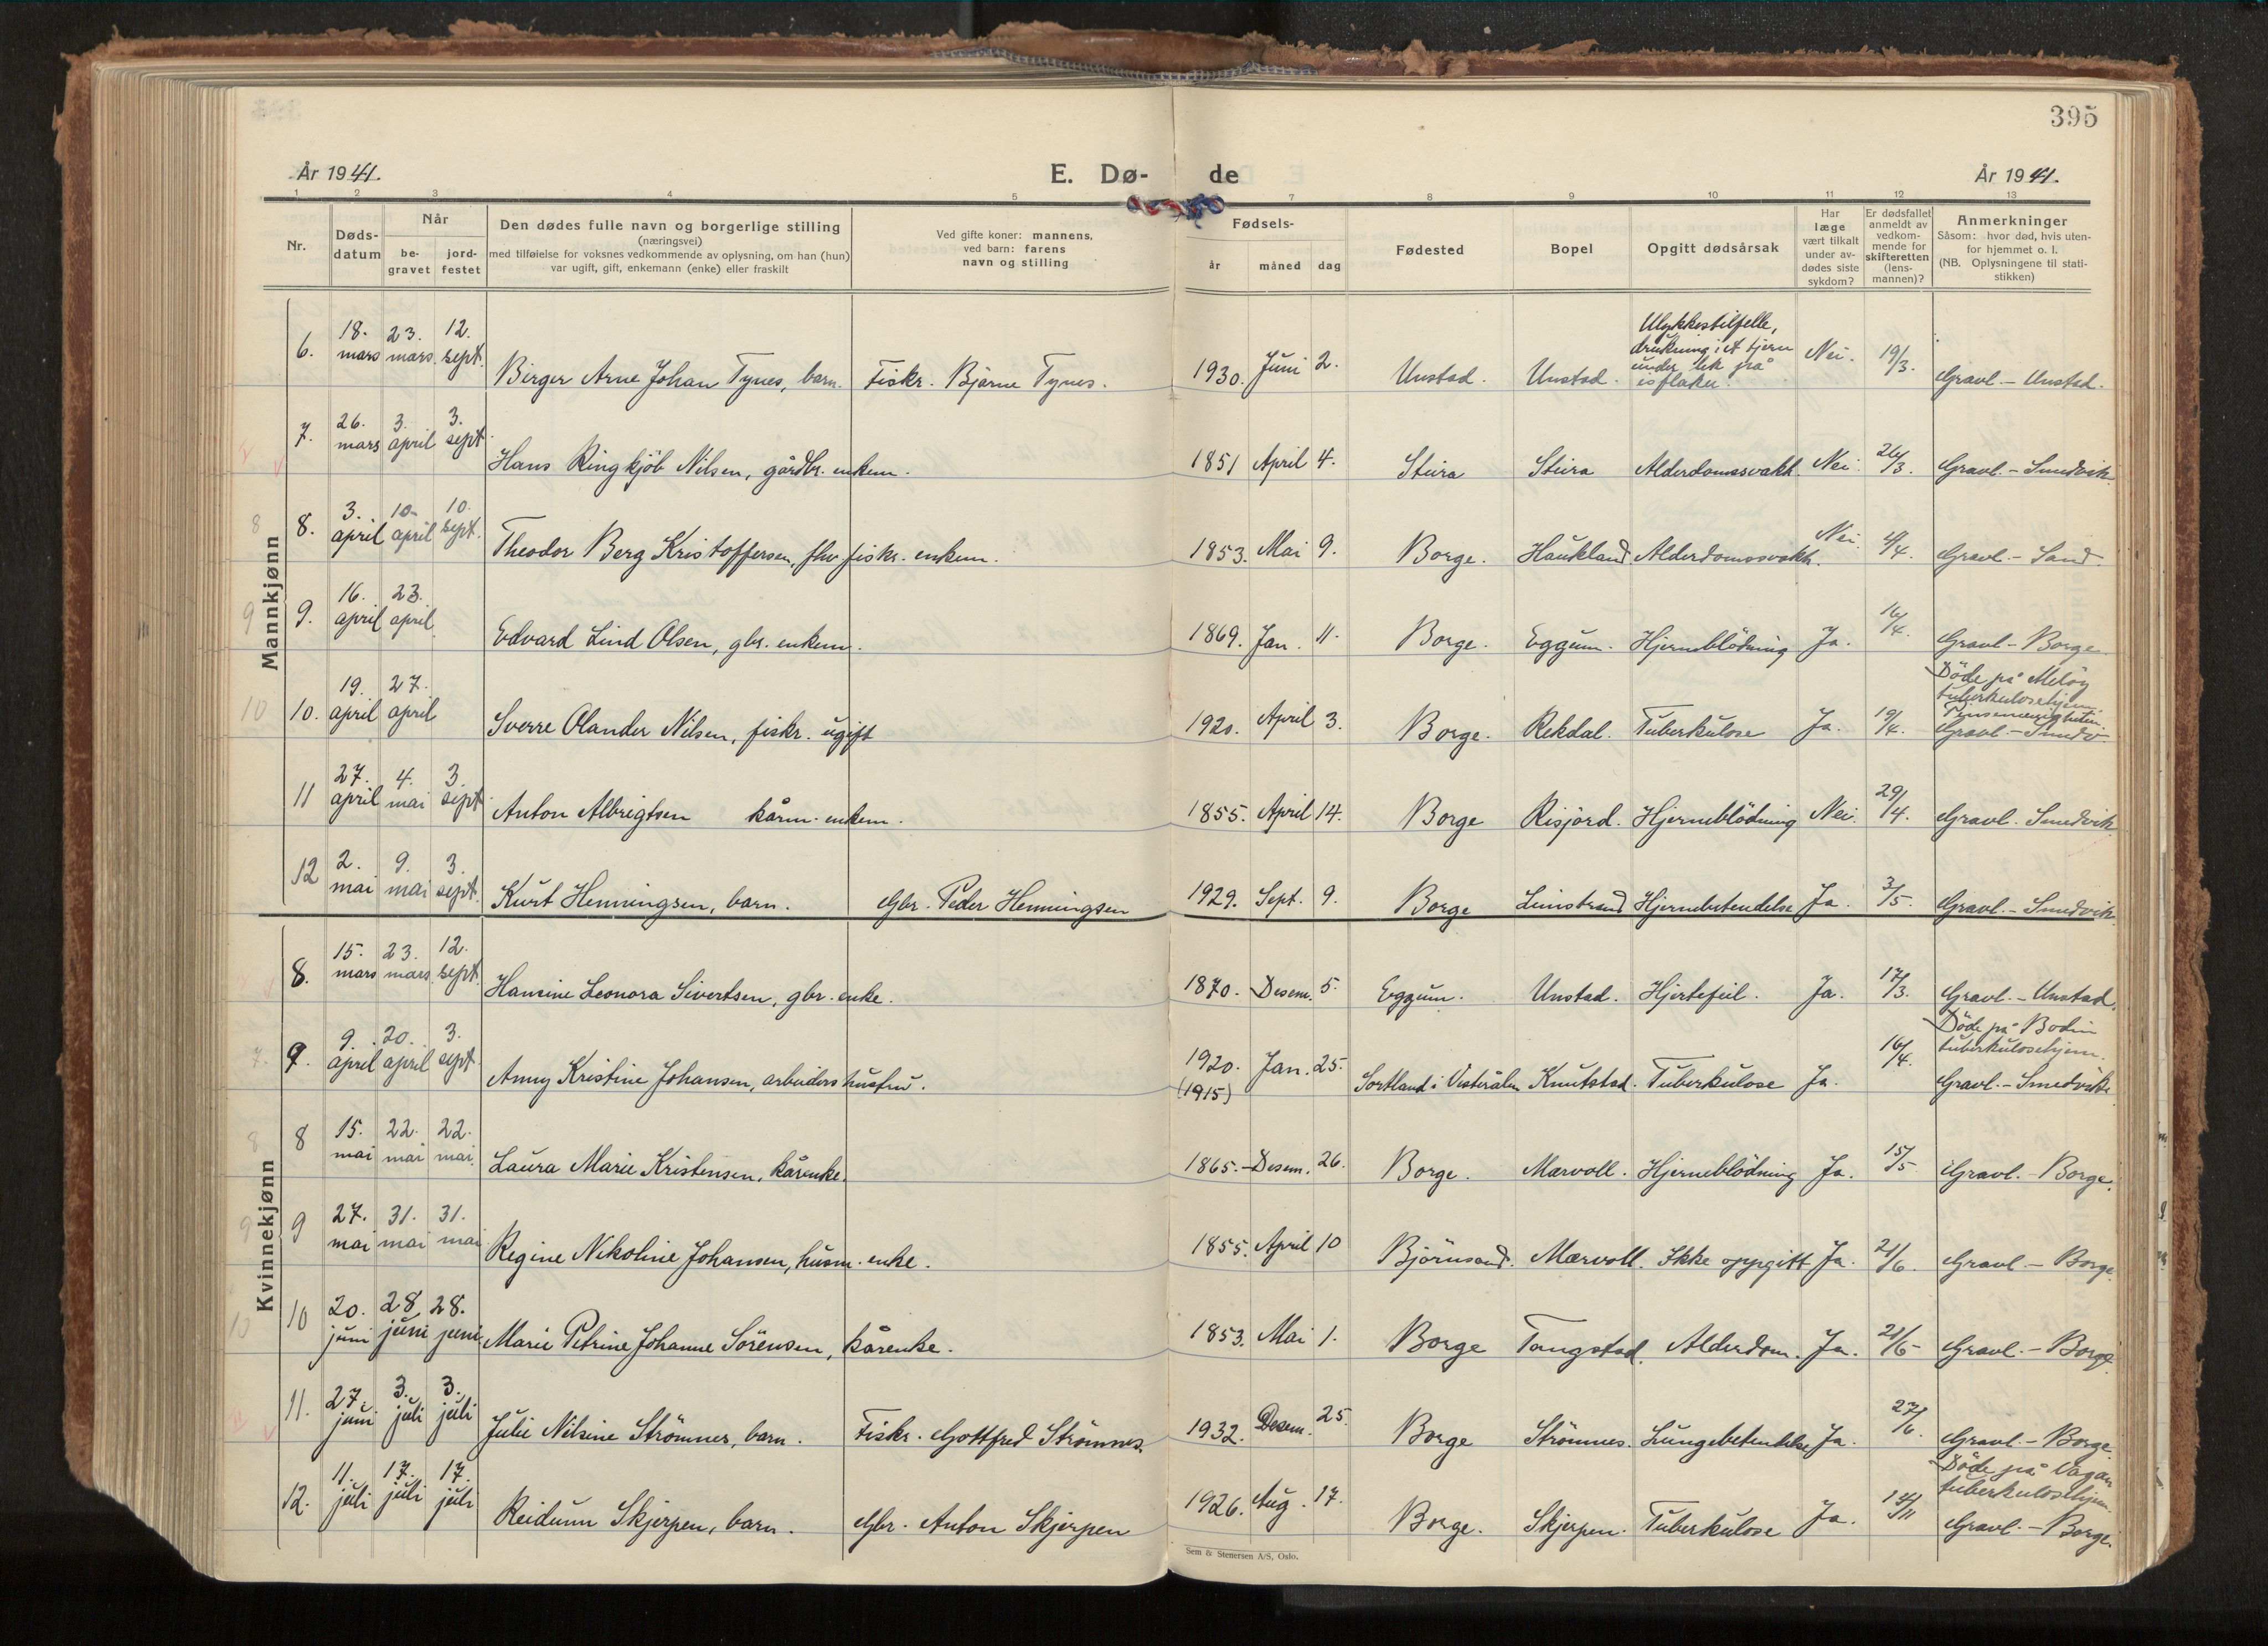 395
År 1941.
E. Dø-
de
År 1941.
1 2 3 4 5 7 8 9 10 11 12 13
Nr.
Døds-
datum
Når
be-
gravet
jord-
festet
Den dødes fulle navn og borgerlige stilling
(næringsvei)
med tilføielse for voksnes vedkommende av oplysning, om han (hun)
var ugift, gift, enkemann (enke) eller fraskilt
Ved gifte koner: mannens,
ved barn: farens
navn og stilling
Fødsels-
år måned dag
Fødested
Bopel
Opgitt dødsårsak
Har
læge
vært tilkalt
under av-
dødes siste
sykdom?
Er dødsfallet
anmeldt av
vedkom-
mende for
skifteretten
(lens-
mannen)?
Anmerkninger
Såsom: hvor død, hvis uten-
for hjemmet o. l.
(NB. Oplysningene til stati-
stikken)
Mannkjønn
6. 18. mars 23. mars. 12. sept. Birger Arne Johan Tynes, barn. Fiskr. Bjarne Tynes. 1930. Juni 2. Unstad. Unstad. Ulykkestilfelle,
drukning i et tjern
under lek på
isflaker. Nei. 19/3. Gravl. - Unstad.
7. 26. mars 3. april 3. sept. Hans Ringkjøb Nilsen, gårdbr. enkem. 1851 April 4. Steira Steira Alderdomssvakh. Nei. 26/3. Gravl. - Smedvik.
8 8. 3. april 10. april 10. sept. Theodor Berg Kristoffersen, fhv. fiskr. enkem. 1853. Mai 9. Borge. Haukland. Alderdomssvakh. Nei. 4/4. Gravl. - Sand.
9 9. 16. april 23. april. Edvard Lind Olsen, gbr. enkem. 1869. Jan. 11. Borge. Eggum. Hjerneblödning Ja. 16/4. Gravl - Borge
10 10. 19. april 27. april Sverre Olander Nilsen, fiskr. ugift 1920. April 3. Borge. Rekdal. Tuberkulose Ja. 19/4. Döde på Melöy
tuberkulosehjem.
Gravl. - Smedv.
11 27. april 4. mai 3. sept. Anton Albrigtsen kårm. enkem. 1855. April 14. Borge Risjord. Hjerneblödning Nei. 29/4. Gravl. Smedvik
12 2. mai 9. mai 3. sept. Kurt Henningsen, barn. Gbr. Peder Henningsen 1929. Sept. 9. Borge Limstrand Hjernebetendelse Ja. 3/5. Gravl. - Smedvik
Kvinnekjønn
8. 15. mars 23. mars. 12. sept. Hansine Leonora Sivertsen, gbr. enke. 1870. Desem. 5. Eggum. Unstad. Hjertefeil. Ja. 17/3. Gravl. - Unstad.
7. 9. 9. april 20. april 3. sept. Anny Kristine Johansen, arbeiders hustru. 1920. (1915) Jan. 25. Sortland i Vesterålen Knutstad. Tuberkulose Ja. 16/4. Döde på Bodin
tuberkulosehjem.
Gravl. - Smedvik.
8 8 15. mai 22. mai 22. mai. Laura Marie Kristensen, kårenke. 1865. - Desem. 26. Borge. Mærvoll. Hjerneblödning Ja. 15/5 Gravl. - Borge.
9 9 27. mai 31. mai 31. mai Regine Nikoline Johansen, husm. enke. 1855. April 10 Björnsand. Mærvoll. Ikke oppgitt Ja. 21/6. Gravl - Borge.
10 10 20. juni 28 juni 28. juni Marie Petrine Johanne Sörensen, kårenke. 1853. Mai 1. Borge Tangstad. Alderdom. Ja. 21/6 - Gravl. - Borge
11. 27. juni 3. juli 3. juli Julie Nilsine Strömnes, barn. Fiskr. Gottfred Strömnes. 1932. Desem. 25. Borge Strömnes. Lungebetendelse Ja. 27/6. Gravl. - Borge.
12. 11. juli 17. juli 17. juli Reidunn Skjerpen, barn. Gbr. Anton Skjerpen 1926. Aug. 17. Borge. Skjerpen. Tuberkulose Ja. Döde på Vågan
tuberkulosehjem.
Gravl. - Borge.
Sem & Stenersen A/S, Oslo.